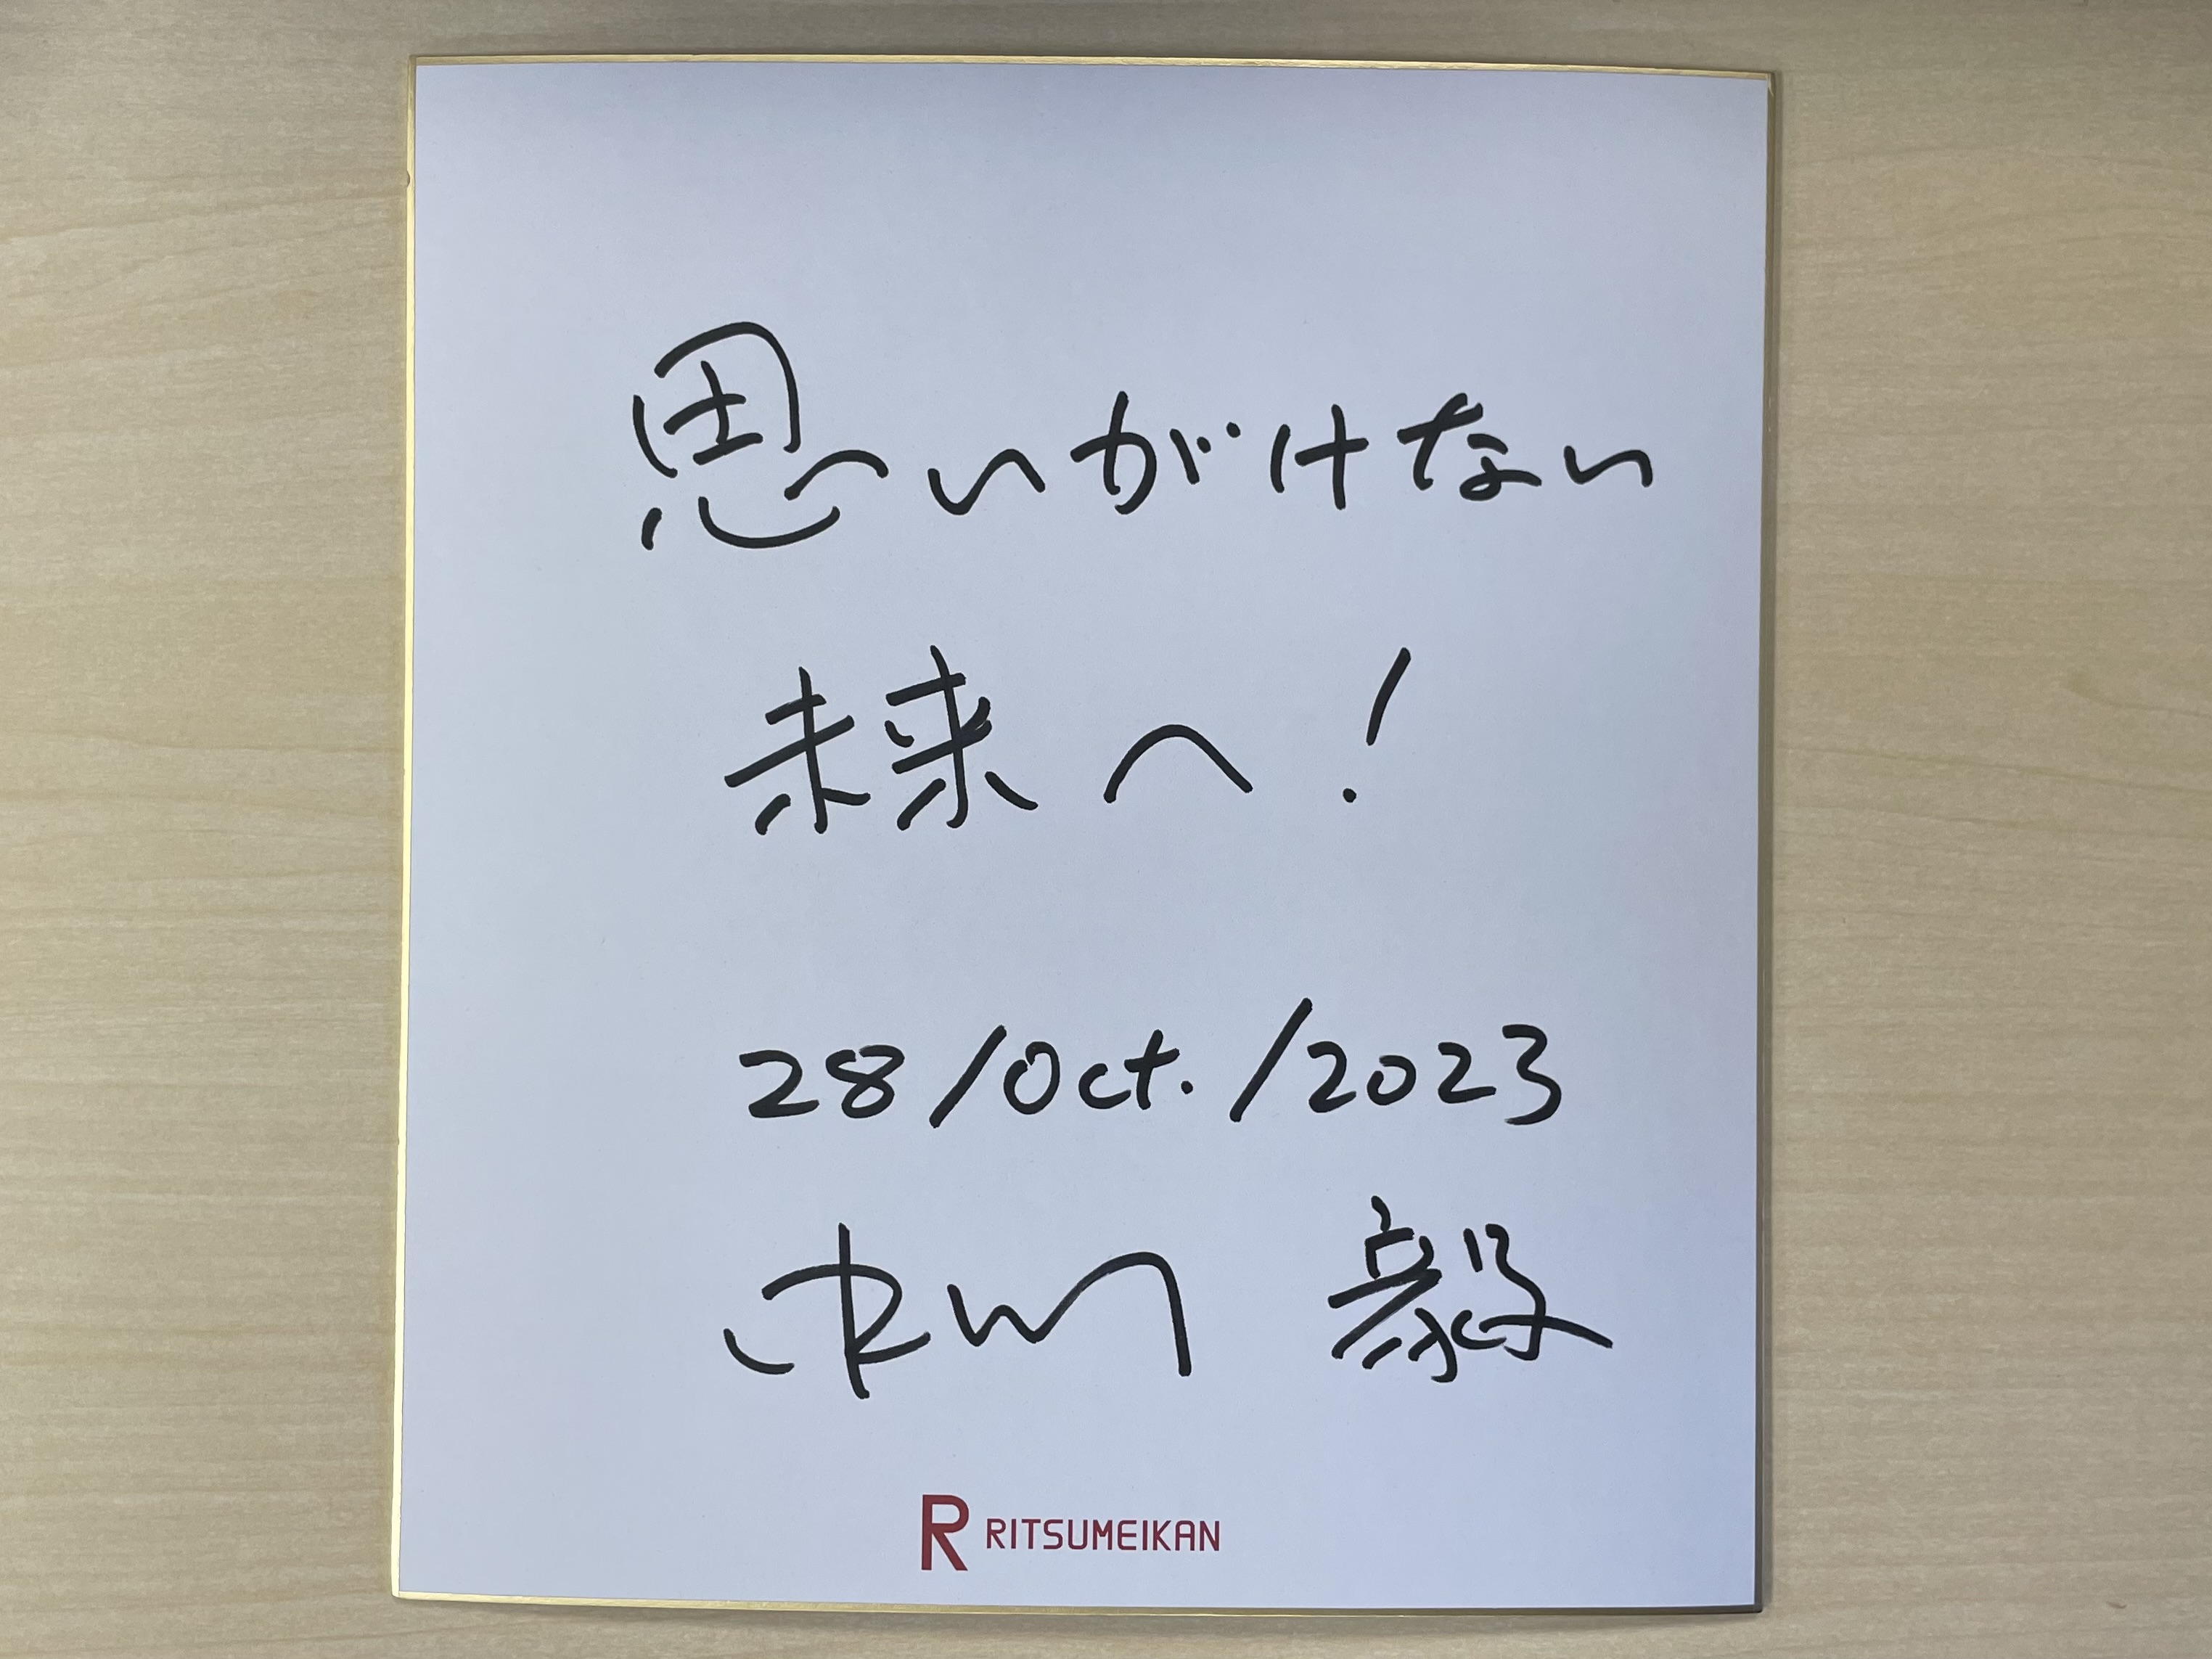 思いがけない
未来へ!
28/Oct./2023
中川 毅
R RITSUMEIKAN